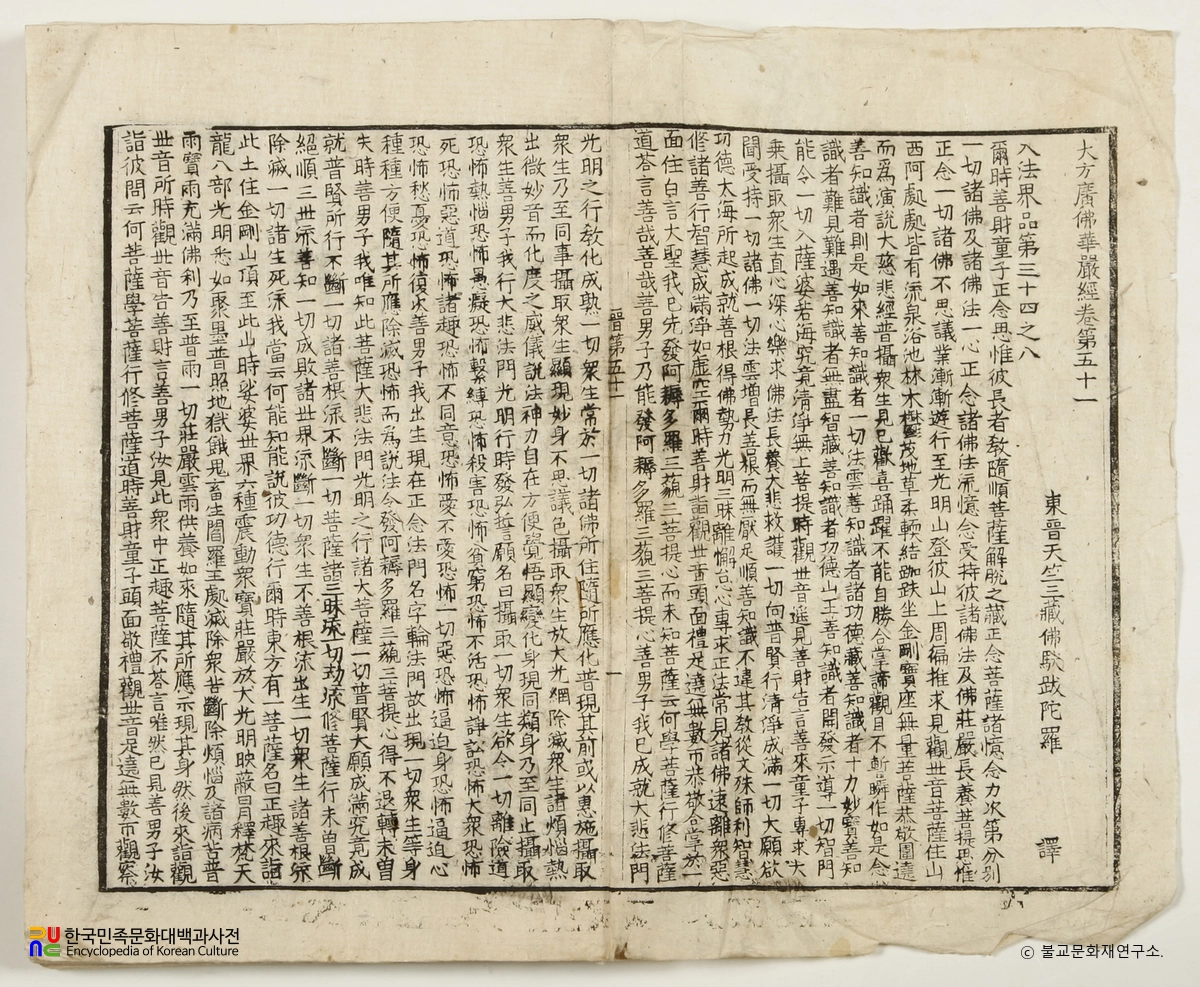 大方廣佛華嚴經卷第五十一
東晉天竺三藏佛馱跋陀羅 譯
入法界品第三十四之八
爾時善財童子正念思惟彼長者教隨順菩薩解脫之藏正念菩薩諸憶念力次第分別
一切諸佛及諸佛法一心正念諸佛法流憶念受持彼諸佛法及佛莊嚴長養菩提思惟
正念一切諸佛不思議業漸漸遊行至光明山登彼山上周徧推求見觀世音菩薩住山
西阿處處皆有流泉浴池林木欝茂地草柔軟結跏趺坐金剛寶座無量菩薩恭敬圍遶
而爲演說大慈悲經普攝衆生見已歡喜踊躍不能自勝合掌諦觀目不暫瞬作如是念
善知識者則是如來善知識者一切法雲善知識者諸功德藏善知識者十力妙寶善知
識者難見難遇善知識者無盡智藏善知識者功德山王善知識者開發示導一切智門
能令一切入薩婆若海究竟清淨無上菩提時觀世音遥見善財告言善來童子專求大
乗攝取衆生直心深心樂求佛法長養大悲救護一切向普賢行清淨成滿一切大願欲
聞受持一切諸佛一切法雲增長善根而無厭足順善知識不違其教從文殊師利智慧
功德大海所起成就善根得佛勢力光明三昧離懈怠心專求正法常見諸佛遠離衆惡
修諸善行智慧成滿淨如虛空爾時善財詣觀世音頭面禮足遶無數帀恭敬合掌於一
面住白言大聖我已先發阿耨多羅三藐三菩提心而未知菩薩云何學菩薩行修菩薩
道荅言善哉善哉善男子乃能發阿耨多羅三藐三菩提心善男子我已成就大悲法門
晉第五十一 一
光明之行教化成熟一切衆生常於一切諸佛所住隨所應化普現其前或以惠施攝取
衆生乃至同事攝取衆生顯現妙身不思議色攝取衆生放大光網除滅衆生諸煩惱熱
出微妙音而化度之威儀說法神力自在方便覺悟顯變化身現同類身乃至同止攝取
衆生善男子我行大悲法門光明行時發弘誓願名曰攝取一切衆生欲令一切離險道
恐怖熱惱恐怖愚癡恐怖繫縛恐怖殺害恐怖貧窮恐怖不活恐怖諍訟恐怖大衆恐怖
死恐怖惡道恐怖諸趣恐怖不同意恐怖愛不愛恐怖一切惡恐怖逼迫身恐怖逼迫心
恐怖愁憂恐怖復次善男子我出生現在正念法門名字輪法門故出現一切衆生等身
種種方便隨其所應除滅恐怖而爲說法令發阿耨多羅三藐三菩提心得不退轉未曽
失時善男子我唯知此菩薩大悲法門光明之行諸大菩薩一切普賢大願成滿究竟成
就普賢所行不斷一切諸善根流不斷一切菩薩諸三昧流一切劫流修菩薩行未曽斷
絕順三世流善知一切成敗諸世界流斷一切衆生不善根流出生一切衆生諸善根流
除滅一切諸生死流我當云何能知能說彼功德行爾時東方有一菩薩名曰正趣來詣
此土住金剛山頂至此山時娑婆世界六種震動衆寶莊嚴放大光明映蔽日月釋梵天
龍八部光明悉如聚墨普照地獄餓鬼畜生閻羅王處滅除衆苦斷除煩惱及諸病苦普
雨寶雨充滿佛刹乃至普雨一切莊嚴雲雨供養如來隨其所應示現其身然後來詣觀
世音所時觀世音告善財言善男子汝見此衆中正趣菩薩不荅言唯然已見善男子汝
詣彼問云何菩薩學菩薩行修菩薩道時善財童子頭面敬禮觀世音足遶無數帀觀察
한국민족문화대백과사전
Encyclopedia of Korean Culture
ⓒ 불교문화재연구소.